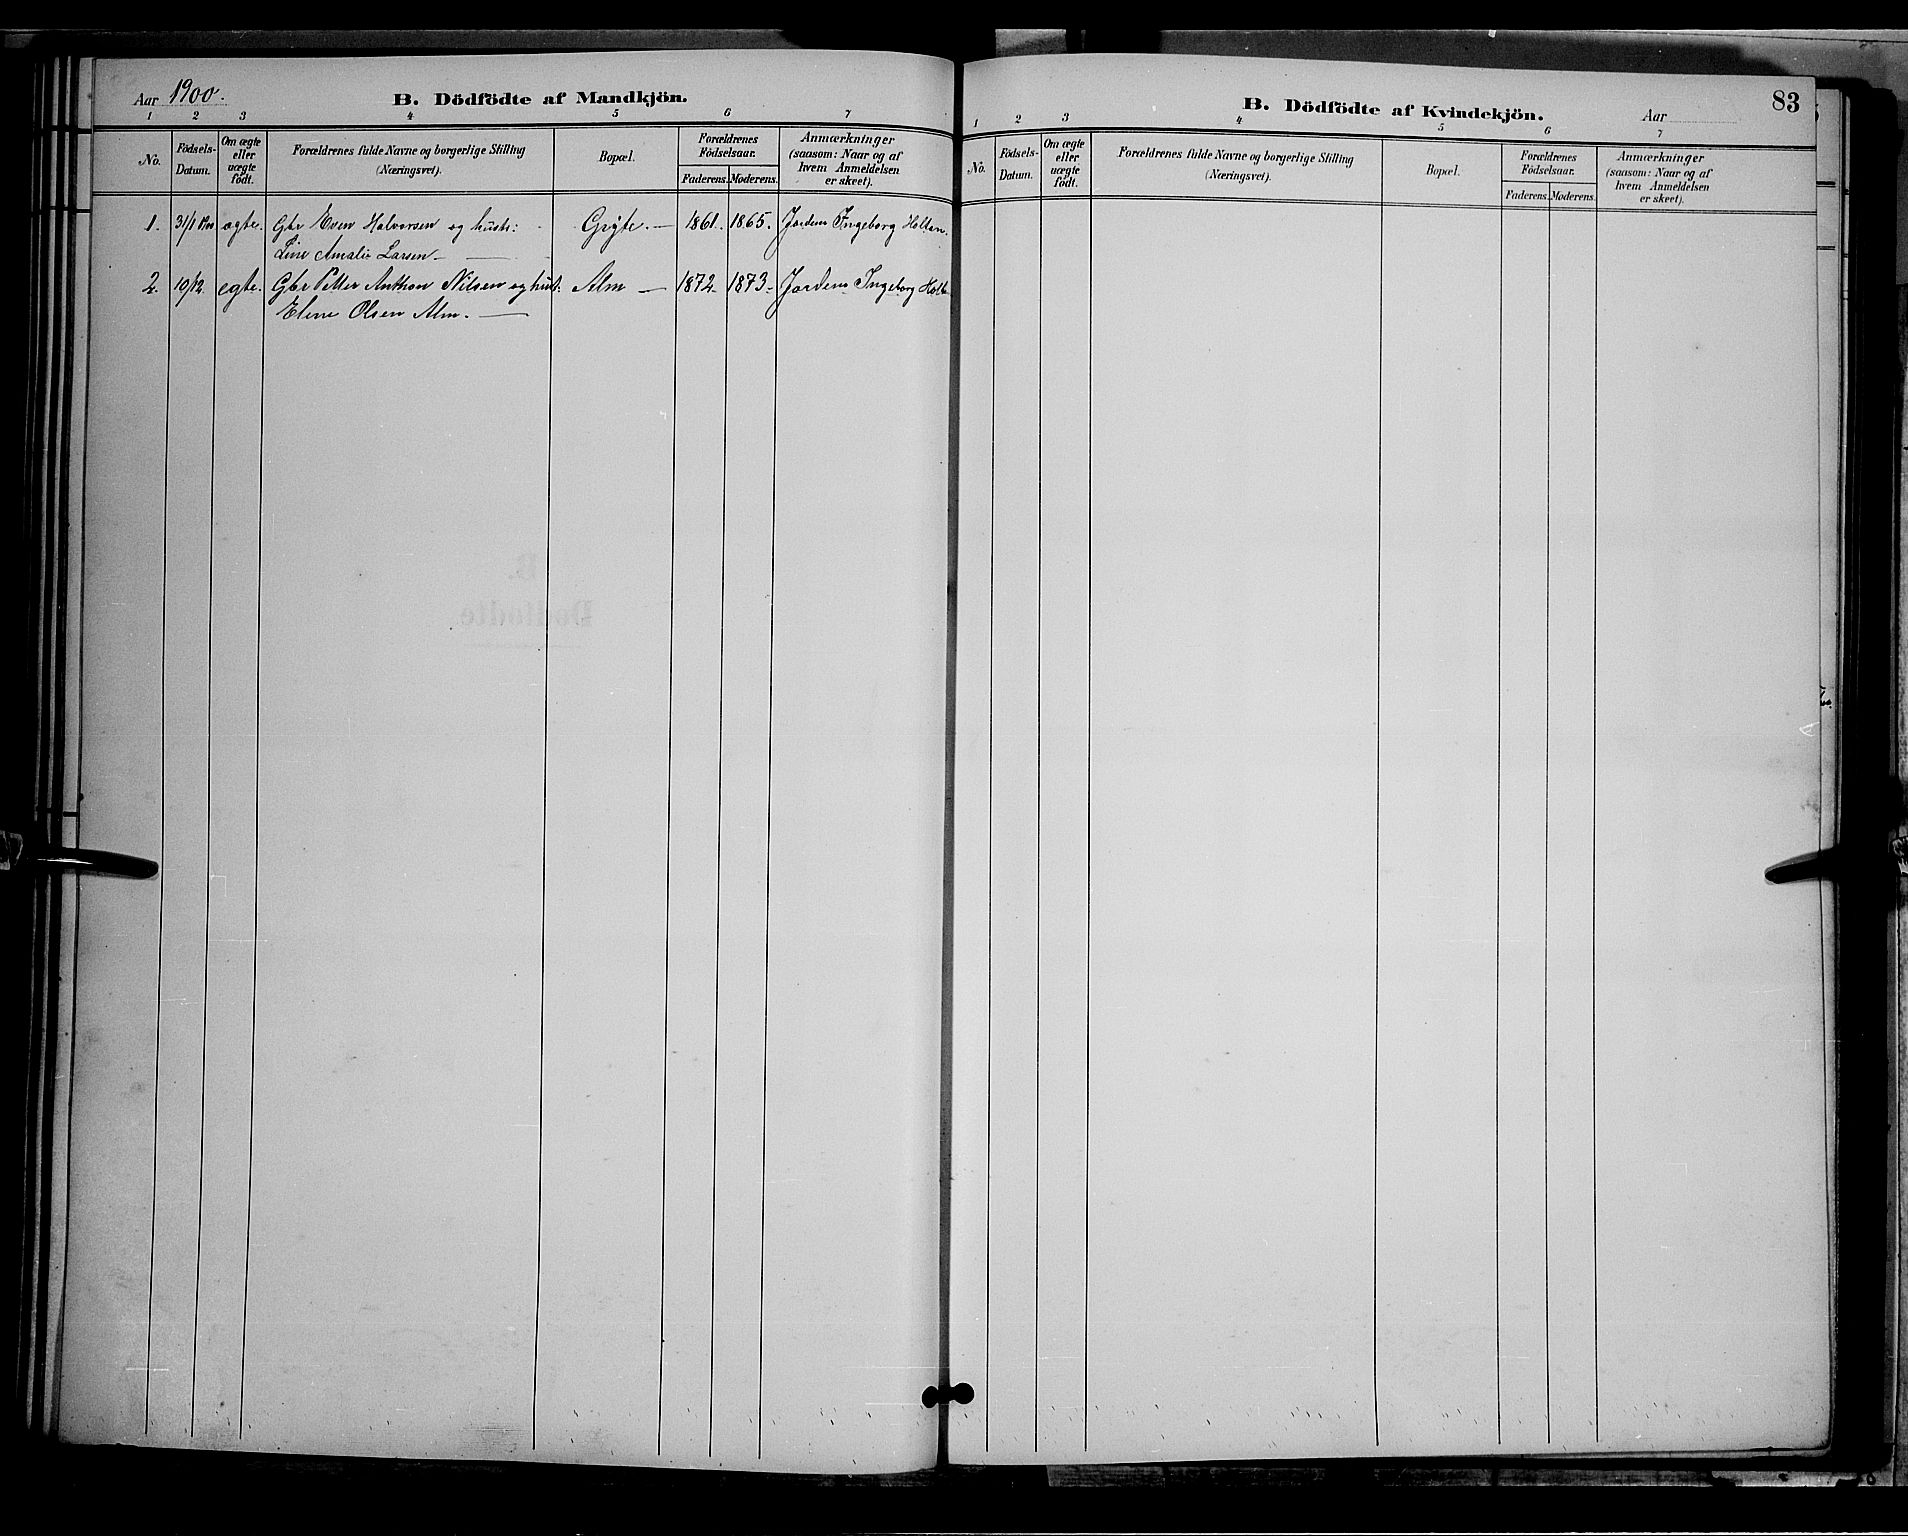 Aar 1900.
B. Dödfödte af Mandkjön.
1 2 3 4 5 6 7
No.
Födsels-
Datum.
Om ægte
eller
uægte
födt.
Forældrenes fulde Navne og borgerlige Stilling
(Næringsvei).
Bopæl.
Forældrenes
Födselsaar.
Faderens. Moderens.
Anmærkninger
(saasom: Naar og af
hvem Anmeldelsen
er skeet).
1. 31/1 1900 ægte. Gbr Even Halvorsen og hustr: Gryte. — 1861. 1865. Jordem Ingeborg Holtan.
Line Amalie Larsen —
2. 19/12. egte. Gbr Petter Anthon Nilsen og hust: Alm — 1872. 1873. Jordem Ingeborg Holta
Eline Olsen Alm. —
B. Dödfödte af Kvindekjön.
Aar
83
1 2 3 4 5 6 7
No.
Födsels-
Datum.
Om ægte
eller
uægte
födt.
Forældrenes fulde Navne og borgerlige Stilling
(Næringsvei).
Bopæl.
Forældrenes
Födselsaar.
Faderens. Moderens.
Anmærkninger
(saasom: Naar og af
hvem Anmeldelsen
er skeet).
B.
Dödfödte